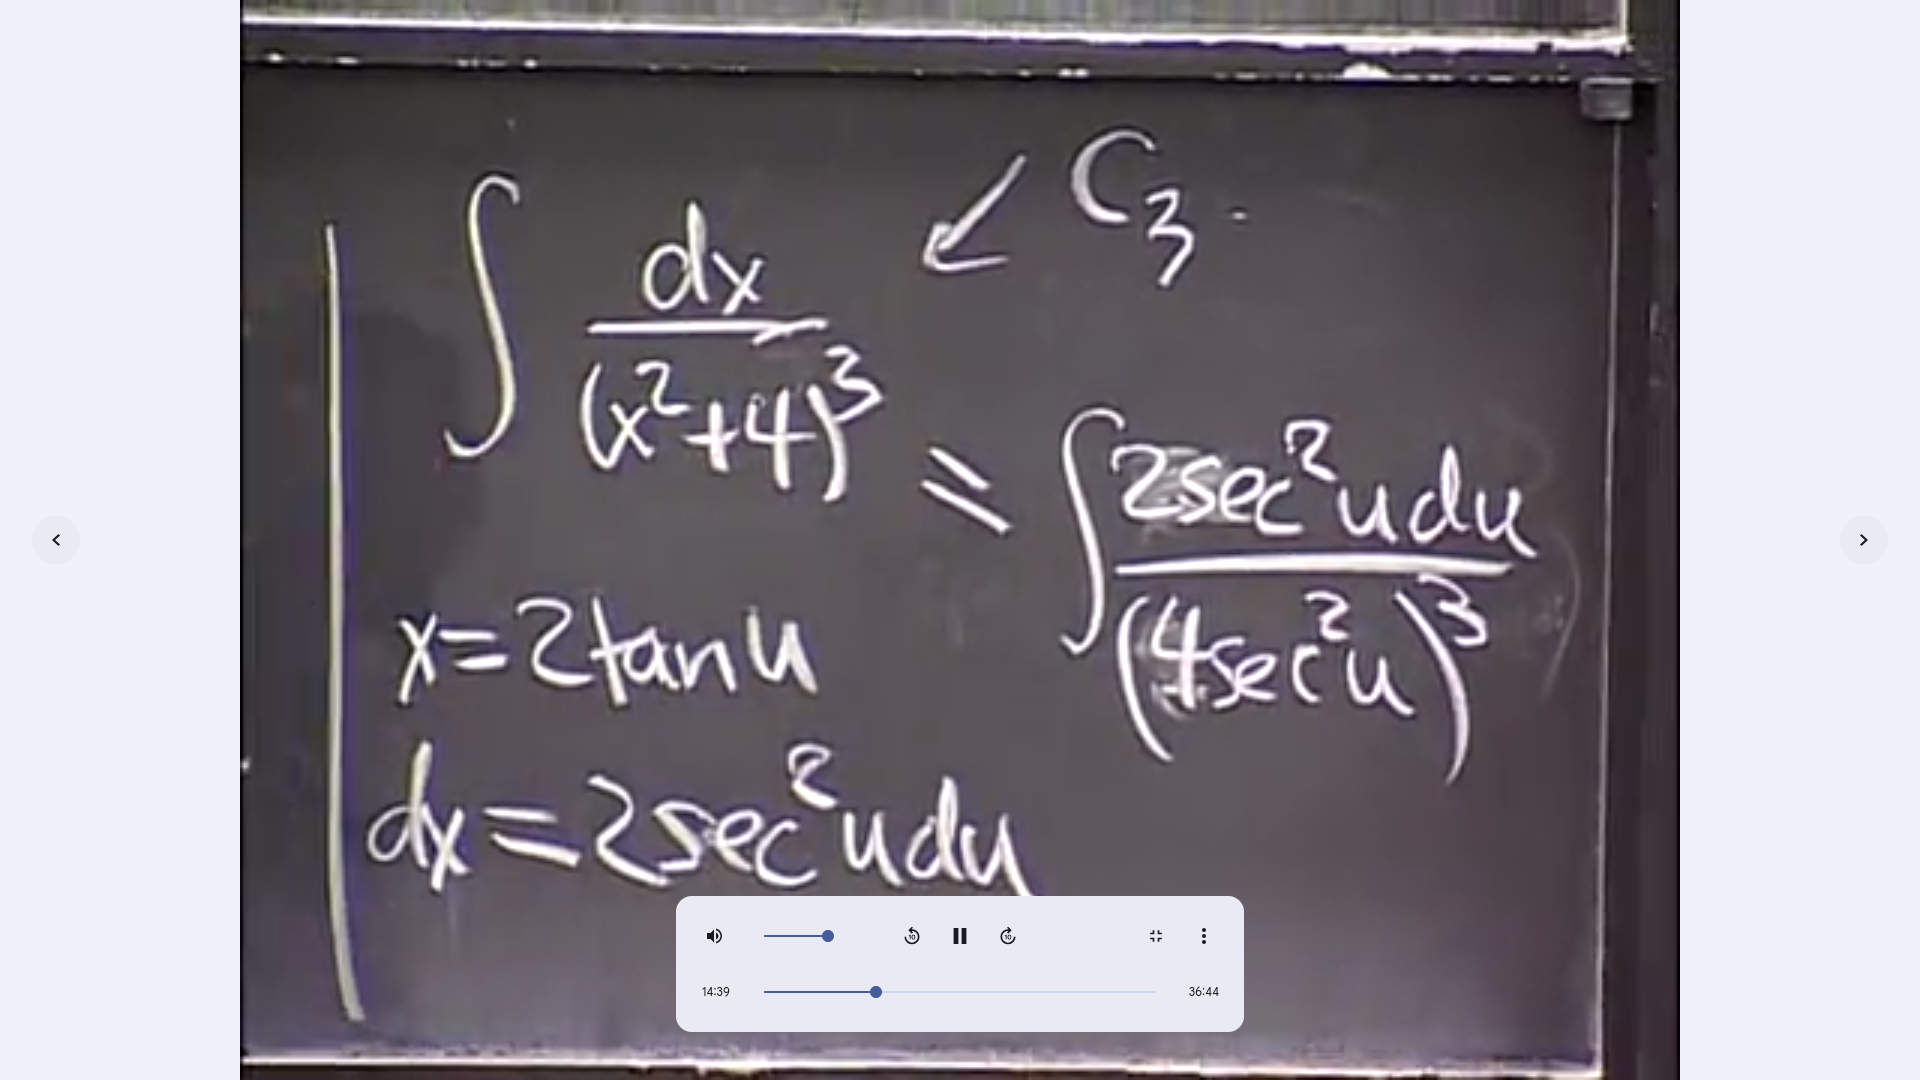 ∫ dx/(x²+4)³ ↙ C₃
= ∫ 2sec²u du/(4sec²u)³
x=2tan u
dx=2sec²u du
10 10
14:39 36:44